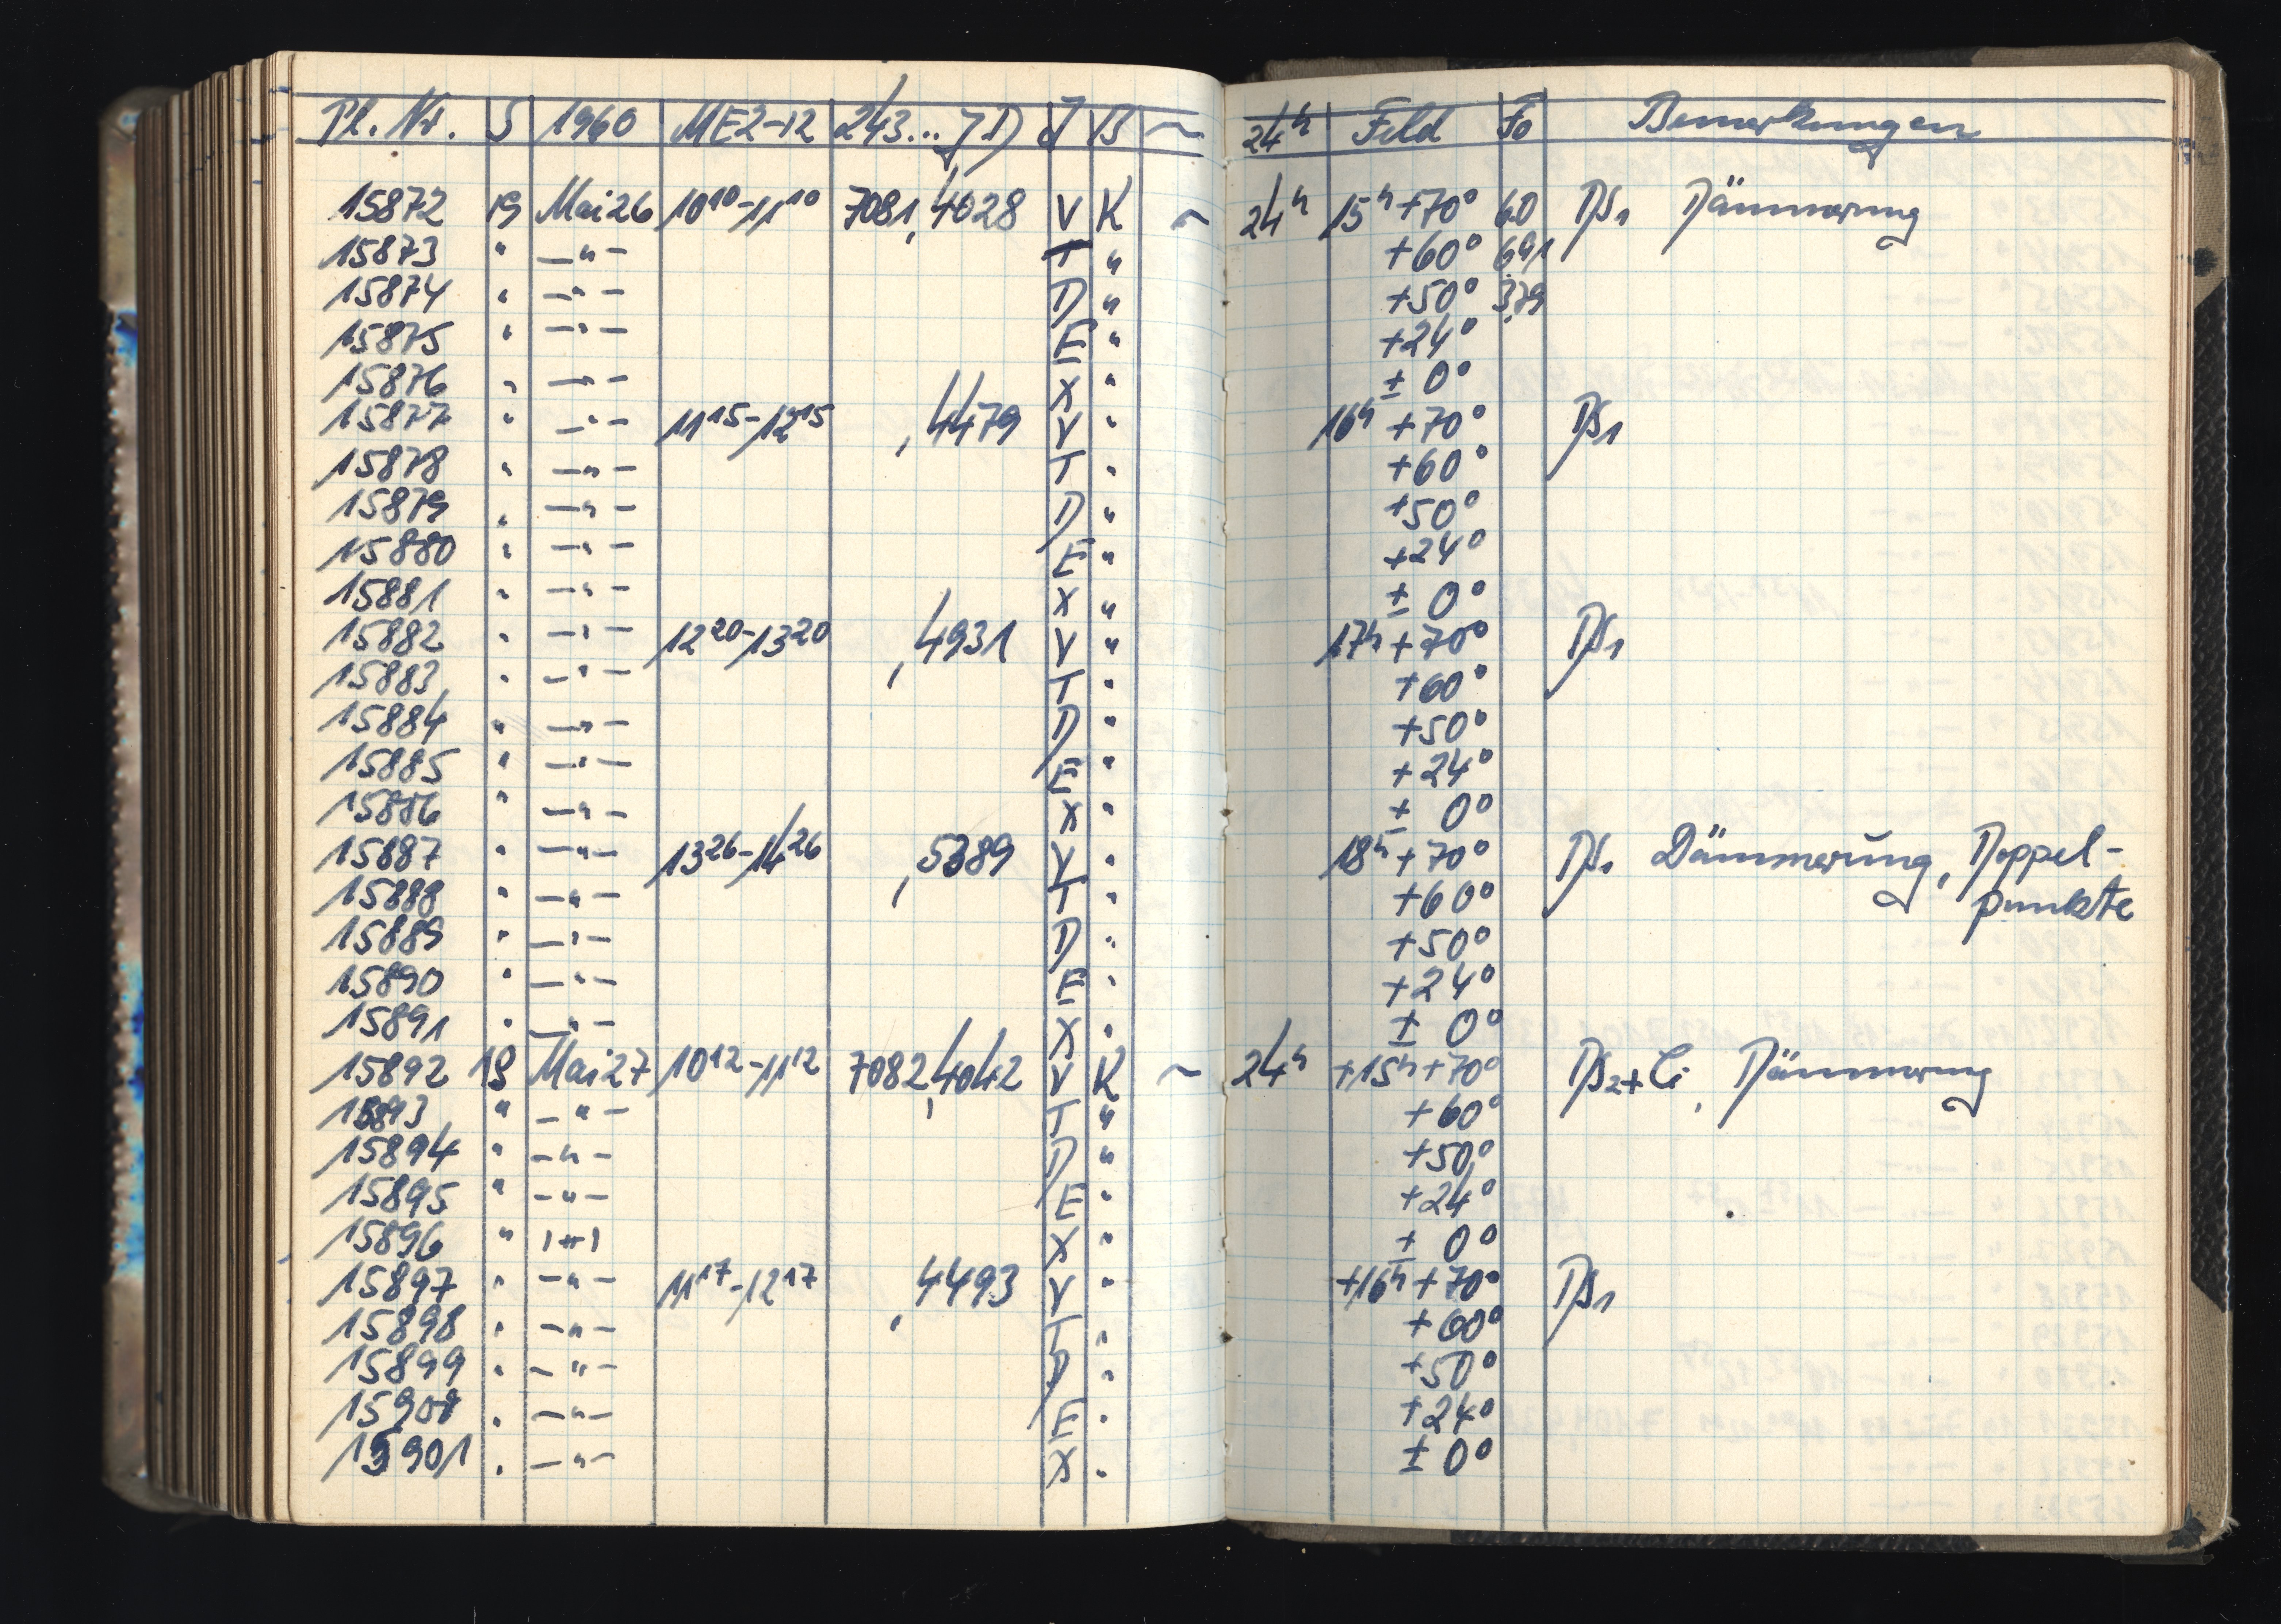 Pl. Nr. S 1960 MEZ-12 243... JD J B ~ 24h Feld Fo Bemerkungen
15872 19 Mai 26 10 10 - 11 10 7081,4028 V K ~ 24h 15h +70° 60 Dämmerung
15873 " — " — T " +60° 691
15874 " — " — D " +50° 379
15875 " — " — E " +24°
15876 " — " — X " ± 0°
15877 " — " — 11 15 - 12 15 ,4479 V " 16h +70°
15878 " — " — T " +60°
15879 " — " — D " +50°
15880 " — " — E " +24°
15881 " — " — X " ± 0°
15882 " — " — 12 20 - 13 20 ,4931 V " 17h +70°
15883 " — " — T " +60°
15884 " — " — D " +50°
15885 " — " — E " +24°
15886 " — " — X " ± 0°
15887 " — " — 13 26 - 14 26 ,5389 V " 18h +70° Dämmerung, Doppel-
15888 " — " — T " +60° punkte
15889 " — " — D " +50°
15890 " — " — E " +24°
15891 " — " — X " ± 0°
15892 19 Mai 27 10 12 - 11 12 7082,4042 V K ~ 24h +15h +70° Ci, Dämmerung
15893 " — " — T " +60°
15894 " — " — D " +50°
15895 " — " — E " +24°
15896 " — " — X " ± 0°
15897 " — " — 11 17 - 12 17 ,4493 V " +16h +70°
15898 " — " — T " +60°
15899 " — " — D " +50°
15900 " — " — E " +24°
15901 " — " — X " ± 0°